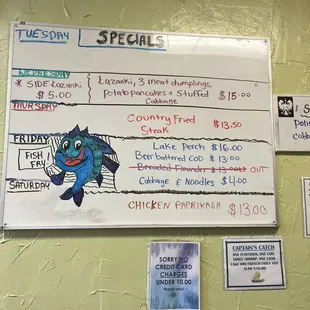 TUESDAY SPECIALS
WEDNESDAY
* SIDE Łazanki
$5.00
Łazanki, 3 meat dumplings,
Potato pancakes + Stuffed
Cabbage
$15.00
THURSDAY
Country Fried
Steak
$13.50
FRIDAY
FISH
FRY
Lake Perch $16.00
Beer battered COD $13.00
Breaded Flounder $13.00 OUT
Cabbage & Noodles $4.00
SATURDAY
CHICKEN PAPRIKASH $13.00
SORRY NO
CREDIT CARD
CHARGES
UNDER 10.00
CAPTAIN'S CATCH